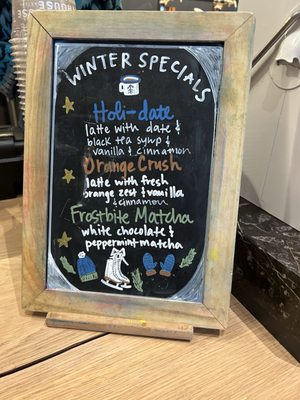 WINTER SPECIALS
Holi-date
latte with date &
black tea syrup &
vanilla & cinnamon
Orange Crush
latte with fresh
orange zest & vanilla
& cinnamon
Frostbite Matcha
white chocolate &
peppermint matcha